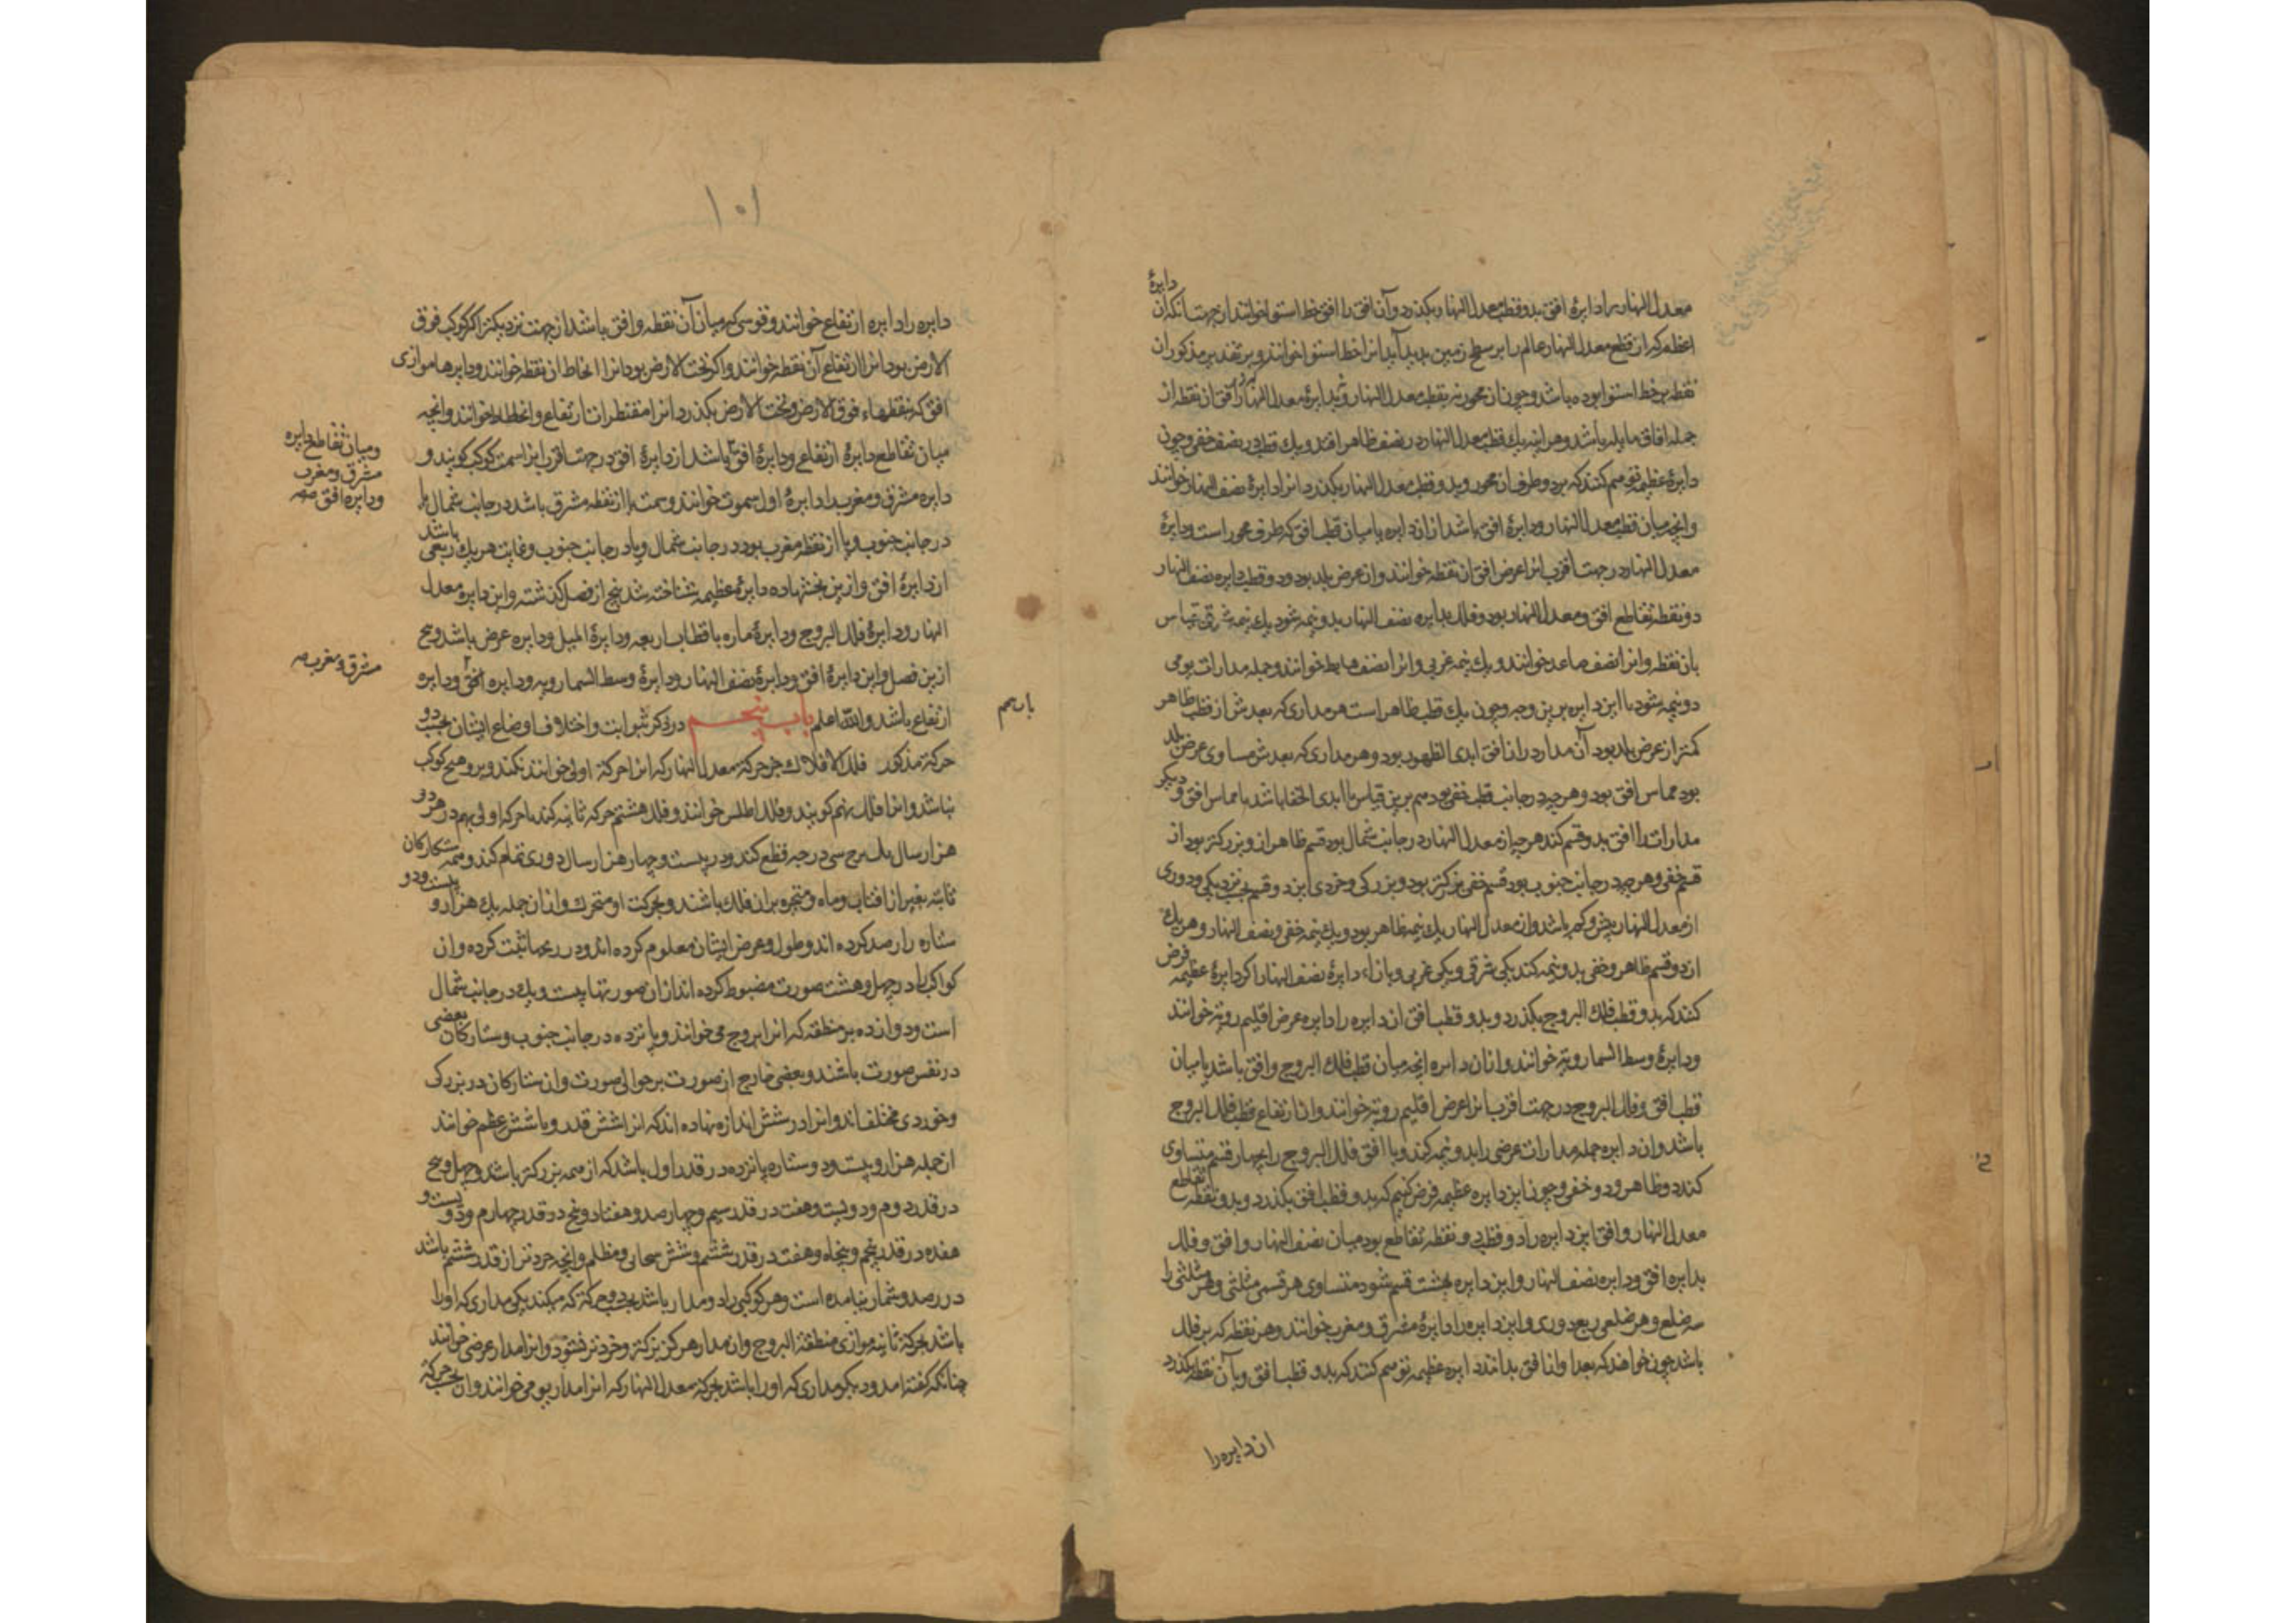 دایرهٔ
معدل النهار را دایرهٔ افق بدو قطب معدل النهار بگذرد و آن افق را افق خط استوا خوانند از جهت آنکه آن
عظیمه که از قطع معدل النهار عالم را بر سطح زمین پدید آید آنرا خط استوا خوانند و بر تقدیر مذکور آن
نقطه بر خط استوا بوده باشد و چون آن محور نه بقطب معدل النهار و نه بدایرهٔ معدل النهار افق آن نقطه از
جمله افاق مایله باشد و هر اینه یک قطب معدل النهار در نصف ظاهر افتد و یک قطب در نصف خفی و چون
دایرهٔ عظیمه توهم کنند که بر دو طرف آن محور و بدو قطب معدل النهار بگذرد آنرا دایرهٔ نصف النهار خوانند
و انچه میان قطب معدل النهار و دایرهٔ افق باشد از ان دایره یا میان قطب افق که طرف محور است و دایرهٔ
معدل النهار در جهت اقرب انرا عرض افق ان نقطه خوانند و ان عرض بلد بود و دو قطب دایره نصف النهار
دو نقطه تقاطع افق و معدل النهار بود و فلک بدایره نصف النهار بدو نیمه شود یک نیمه شرقی بقیاس
بان نقطه و انرا نصف صاعد خوانند و یک نیمه غربی و انرا نصف هابط خوانند و جمله مدارات یومی
دو نیمه شود با این دایره برین وجه و چون یک قطب ظاهر است هر مداری که بعدش از قطب ظاهر
کمتر از عرض بلد بود آن مدار در ان افق ابدی الظهور بود و هر مداری که بعدش مساوی عرض بلد
بود مماس افق بود و هر چه در جانب قطب خفی بود هم برین قیاس یا ابدی الخفا باشد یا مماس افق و دیگر
مدارات را افق بدو قسم کند هر چه از معدل النهار در جانب شمال بود قسم ظاهر ازو بزرکتر بود از
قسم خفی و هر چه در جانب جنوب بود قسم خفی بزرکتر بود و بزرکی و خردی این دو قسم بحسب نزدیکی و دوری
از معدل النهار بیش و کم باشد و از معدل النهار یک نیمه ظاهر بود و یک نیمه خفی و نصف النهار و هر یک
از دو قسم ظاهر و خفی بدو نیمه کند یکی شرقی و یکی غربی و بازاء دایرهٔ نصف النهار اکر دایرهٔ عظیمه فرض
کنند که بدو قطب فلک البروج بگذرد و بدو قطب افق ان دایره را دایره عرض اقلیم رویة خوانند
و دایرهٔ وسط السماء رویة خوانند و از ان دایره انچه میان قطب فلک البروج و افق باشد یا میان
قطب افق و فلک البروج در جهت اقرب انرا عرض اقلیم رویة خوانند و ان ارتفاع قطب فلک البروج
باشد و ان دایره جمله مدارات عرضی را بدو نیمه کند و با افق فلک البروج را بچهار قسم متساوی
کند دو ظاهر و دو خفی و چون این دایره عظیمه فرض کنیم که بدو قطب افق بگذرد و بدو نقطه تقاطع
معدل النهار و افق این دایره را دو قطب دو نقطه تقاطع بود میان نصف النهار و افق و فلک
بدایره افق و دایره نصف النهار و این دایره بهشت قسم شود متساوی هر قسمی مثلثی و هر مثلثی را
سه ضلع و هر ضلعی ربع دوری و این دایره را دایرهٔ مشرق و مغرب خوانند و هر نقطه که بر فلک
باشد چون خواهند که بعد او از افق بدانند دایره عظیمه توهم کنند که بدو قطب افق و بآن نقطه بگذرد
ان دایره را
۱۰۱
دایره را دایره ارتفاع خوانند و قوسی که میان آن نقطه و افق باشد از جهت نزدیکتر اکر کوکب فوق
الارض بود انرا ارتفاع آن نقطه خوانند و اکر تحت الارض بود انرا انحطاط ان نقطه خوانند و دایرها موازی
افق که بنقطهاء فوق الارض و تحت الارض بگذرد انرا مقنطرات ارتفاع و انحطاط خوانند و انچه
میان تقاطع دایرهٔ ارتفاع و دایرهٔ افق باشد از دایرهٔ افق در جهت اقرب انرا سمت کوکب کویند و
دایره مشرق و مغرب را دایرهٔ اول سموت خوانند و سمت یا از نقطه مشرق باشد در جانب شمال یا
در جانب جنوب و یا از نقطه مغرب بود در جانب شمال و یا در جانب جنوب و غایت هر یک ربعی باشد
از دایرهٔ افق و ازین بخشها ده دایرهٔ عظیمه شناخته شد پنج از فصل کذشته و این دایره معدل
النهار و دایرهٔ فلک البروج و دایرهٔ ماره باقطاب اربعه و دایرهٔ المیل و دایره عرض باشد و پنج
ازین فصل و این دایرهٔ افق و دایرهٔ نصف النهار و دایرهٔ وسط السماء رویه و دایره افق و دایره
ارتفاع باشد والله اعلم باب پنجم در ذکر ثوابت و اختلاف اوضاع ایشان بحسب دو
حرکة مذکور فلک الافلاک جز حرکة معدل النهار که انرا حرکة اولی خوانند نکند و برو هیچ کوکب
نباشد و انرا فلک نهم کویند و فلک اطلس خوانند و فلک هشتم حرکة ثانیه کند با حرکه اولی بهم در هر دو
هزار سال یک برج سی درجه قطع کند و در بیست و چهار هزار سال دوری تمام کند و همه ستارکان
ثابته بغیر از افتاب و ماه و متحیره بر ان فلک باشند و بحرکت او متحرک و از ان جمله یک هزار و بیست و دو
ستاره را رصد کرده اند و طول و عرض ایشان معلوم کرده اند و در زیجها ثبت کرده و ان
کواکب را در چهل و هشت صورت مضبوط کرده اند از ان صورتها بیست و یک در جانب شمال
است و دوازده بر منطقه که انرا بروج می خوانند و پانزده در جانب جنوب و ستارکان بعضی
در نفس صورت باشند و بعضی خارج از صورت بر حوالی صورت و ان ستارکان در بزرکی
و خوردی مختلف اند و انرا در شش اندازه نهاده اند که انرا شش قدر و یا شش عظم خوانند
از جمله هزار و بیست و دو ستاره پانزده در قدر اول باشد که از همه بزرکتر باشد و چهل و پنج
در قدر دوم و دویست و هشت در قدر سیم و چهار صد و هفتاد و پنج در قدر چهارم و دویست و
هفده در قدر پنجم و پنجاه و هفت در قدر ششم و شش سحابی و مظلم و انچه خردتر از قدر ششم باشد
در رصد و شمار نیامده است و هر کوکبی را دو مدار باشد بحسب دو حرکة که میکند یکی مداری که او را
باشد بحرکة ثانیه موازی منطقة البروج و ان مدار هرکز بزرکتر و خردتر نشود و انرا مدار عرضی خوانند
چنانکه کفته امد و دیکر مداری که او را باشد بحرکة معدل النهار که انرا مدار یومی خوانند و ان بحسب حرکة
و میان تقاطع دایره
مشرق و مغرب
و دایره افق صح
مشرق و مغرب صح